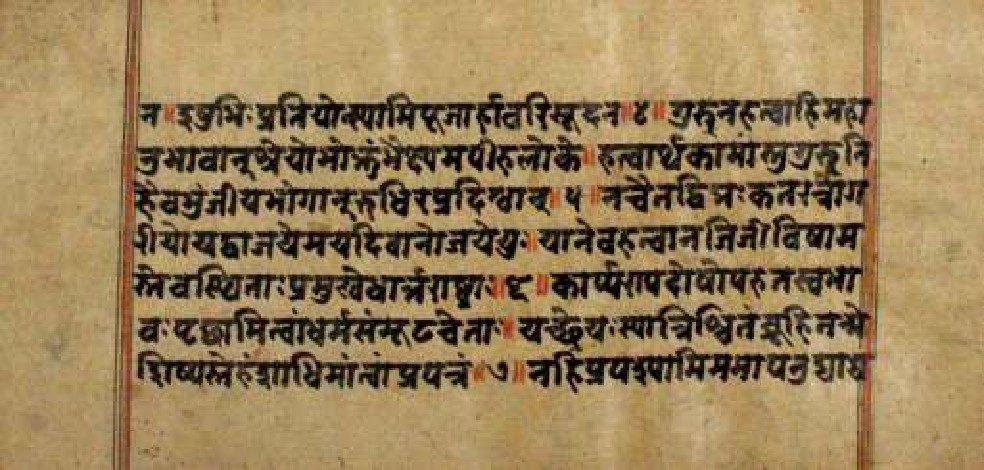 न ॥ इषुभिः प्रतियोत्स्यामि पूजार्हावरिसूदन ॥ ४ ॥ गुरूनहत्वाहिमहा
नुभावान्श्रेयोभोक्तुंभैक्ष्यमपीहलोके ॥ हत्वार्थकामांस्तुगुरूनि
हैवभुंजीयभोगान्रुधिरप्रदिग्धान् ॥ ५ ॥ नचैतद्विद्मः कतरन्नोग
रीयोयद्वाजयेमयदिवानोजयेयुः ॥ यानेवहत्वानजिजीविषाम
स्तेवस्थिताः प्रमुखेधार्त्तराष्ट्राः ॥ ६ ॥ कार्प्पण्यदोषोपहतस्वभा
वः पृच्छामित्वांधर्मसंमूढचेताः ॥ यच्छ्रेयः स्यान्निश्चितंब्रूहितन्मे
शिष्यस्तेहंशाधिमांत्वांप्रपन्नं ॥ ७ ॥ नहिप्रपश्यामिममापनुद्याद्य